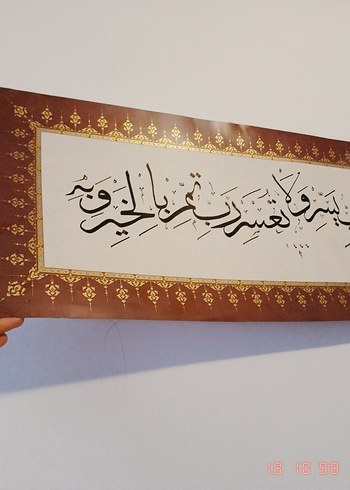 يَسِّرْ وَلَا تُعَسِّرْ رَبِّ تَمِّمْ بِالْخَيْرِ وَبِهِ
18 10 98